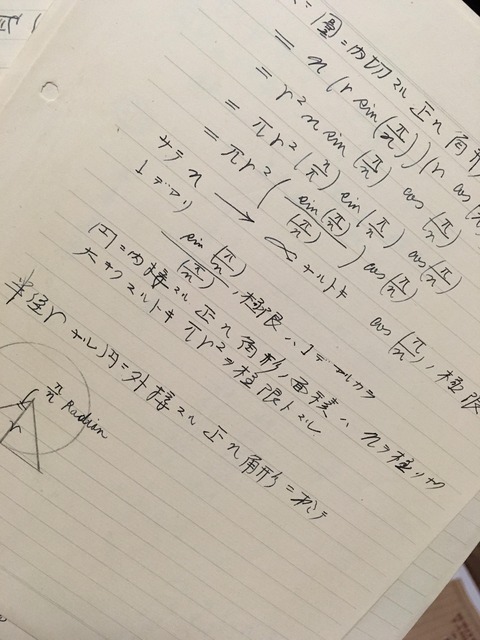 圓ニ内切スル正n角形
= n (r sin(π/n)) (r cos(π/
= r² n sin (π/n) cos (π/n)
= πr² (n/π) sin (π/n) cos (π/n)
= πr² (sin(π/n)/(π/n)) cos (π/n)
サテ n → ∝ ナルトキ cos (π/n)ノ極限
1デアリ sin(π/n)/(π/n)ノ極限ハ1デアルカラ
円ニ内接スル正n角形ノ面積ハnヲ極メテ
大キクスルトキ πr²ヲ極限トスル.
半径rナル円ニ外接スル正n角形ニ於テ
π/n Radian
r